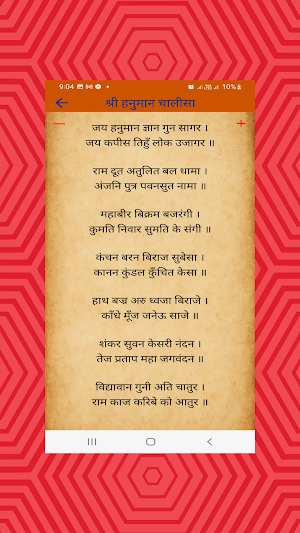 9:04
10%
श्री हनुमान चालीसा
जय हनुमान ज्ञान गुन सागर ।
जय कपीस तिहुँ लोक उजागर ॥
राम दूत अतुलित बल धामा ।
अंजनि पुत्र पवनसुत नामा ॥
महाबीर बिक्रम बजरंगी ।
कुमति निवार सुमति के संगी ॥
कंचन बरन बिराज सुबेसा ।
कानन कुंडल कुँचित केसा ॥
हाथ बज्र अरु ध्वजा बिराजे ।
काँधे मूँज जनेऊ साजे ॥
शंकर सुवन केसरी नंदन ।
तेज प्रताप महा जगवंदन ॥
विद्यावान गुनी अति चातुर ।
राम काज करिबे को आतुर ॥